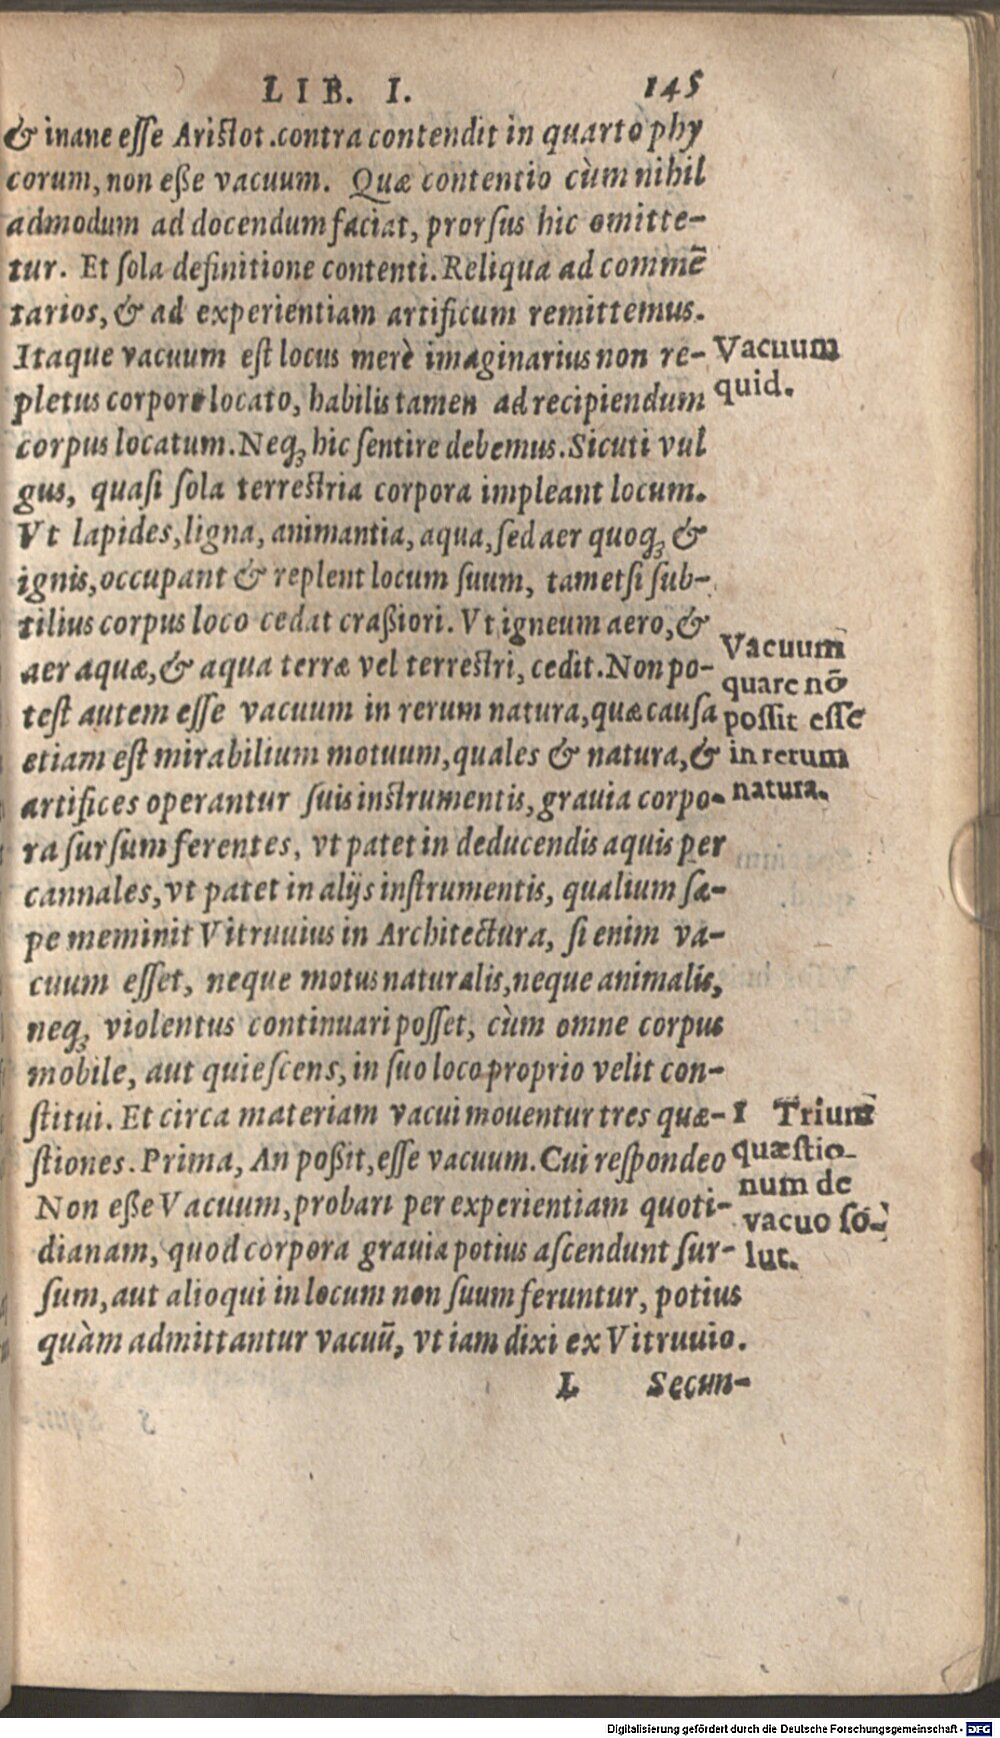 LIB. I. 145
& inane esse Aristot. contra contendit in quarto phy
corum, non eße vacuum. Quæ contentio cùm nihil
admodum ad docendum faciat, prorsus hic omitte-
tur. Et sola definitione contenti. Reliqua ad commẽ
tarios, & ad experientiam artificum remittemus.
Itaque vacuum est locus merè imaginarius non re-
pletus corpore locato, habilis tamen ad recipiendum
corpus locatum. Neqꝫ hic sentire debemus. Sicuti vul
gus, quasi sola terrestria corpora impleant locum.
Vt lapides, ligna, animantia, aqua, sed aer quoqꝫ &
ignis, occupant & replent locum suum, tametsi sub-
tilius corpus loco cedat craßiori. Vt igneum aero, &
aer aquæ, & aqua terræ vel terrestri, cedit. Non po-
test autem esse vacuum in rerum natura, quæ causa
etiam est mirabilium motuum, quales & natura, &
artifices operantur suis instrumentis, grauia corpo-
ra sursum ferentes, vt patet in deducendis aquis per
cannales, vt patet in alijs instrumentis, qualium sæ-
pe meminit Vitruuius in Architectura, si enim va-
cuum esset, neque motus naturalis, neque animalis,
neqꝫ violentus continuari posset, cùm omne corpus
mobile, aut quiescens, in suo loco proprio velit con-
stitui. Et circa materiam vacui mouentur tres quæ-
stiones. Prima, An poßit, esse vacuum. Cui respondeo
Non eße Vacuum, probari per experientiam quoti-
dianam, quod corpora grauia potius ascendunt sur-
sum, aut alioqui in locum non suum feruntur, potius
quàm admittantur vacuũ, vt iam dixi ex Vitruuio.
L Secun-
Vacuum
quid.
Vacuum
quare nõ
possit esse
in rerum
natura.
1 Trium
quæstio-
num de
vacuo so-
lut.
Digitalisierung gefördert durch die Deutsche Forschungsgemeinschaft - DFG